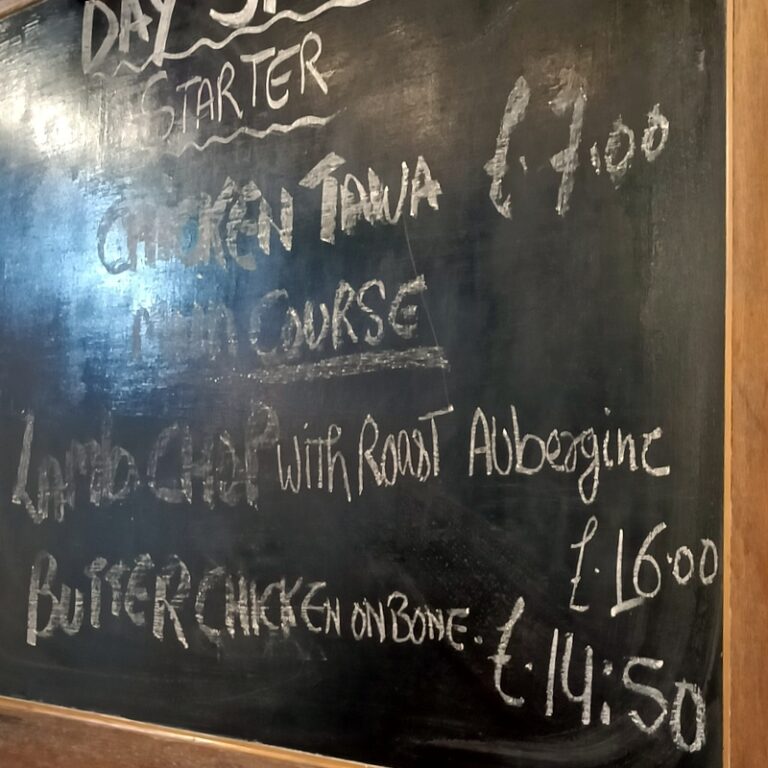 DAY
STARTER
CHICKEN TAWA £.7.00
MAIN COURSE
LAMB CHOP with ROAST Aubergine
£.16.00
BUTTER CHICKEN ON BONE. £.14:50